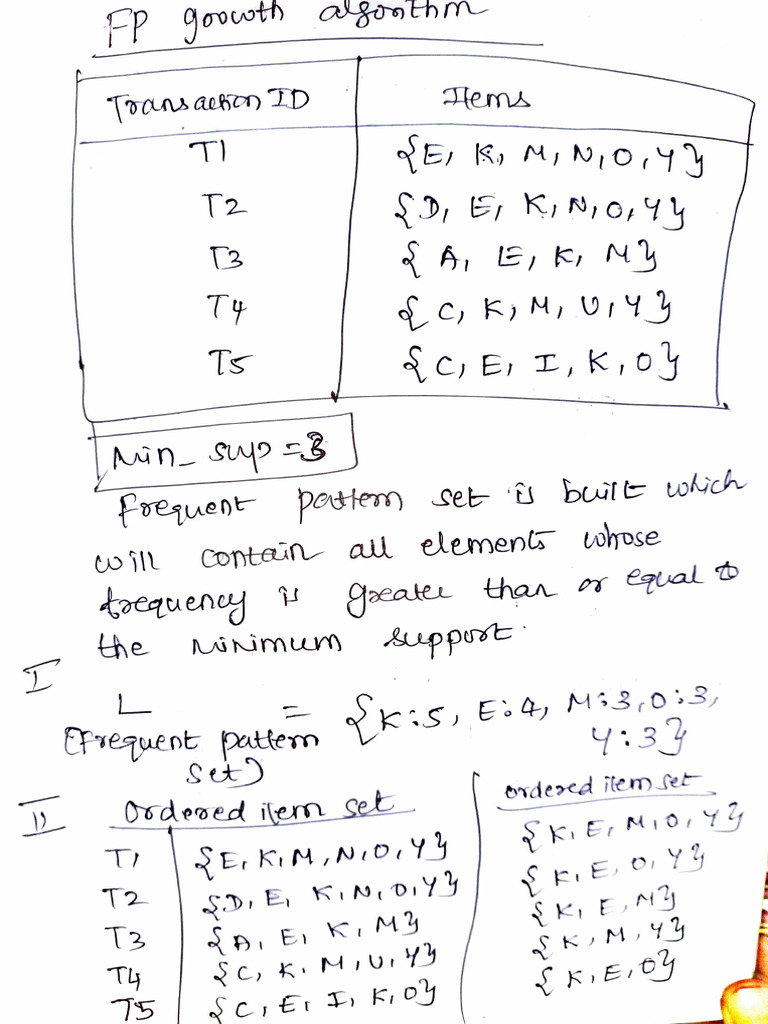 FP growth algorithm
Transaction ID Items
T1 {E, K, M, N, O, Y}
T2 {D, E, K, N, O, Y}
T3 {A, E, K, M}
T4 {C, K, M, U, Y}
T5 {C, E, I, K, O}
Min_sup = 3
Frequent pattern set is built which
will contain all elements whose
frequency is greater than or equal to
the minimum support.
I
L = {K:5, E:4, M:3, O:3,
(Frequent pattern Y:3}
set)
II Ordered item set ordered item set
T1 {E, K, M, N, O, Y} {K, E, M, O, Y}
T2 {D, E, K, N, O, Y} {K, E, O, Y}
T3 {A, E, K, M} {K, E, M}
T4 {C, K, M, U, Y} {K, M, Y}
T5 {C, E, I, K, O} {K, E, O}